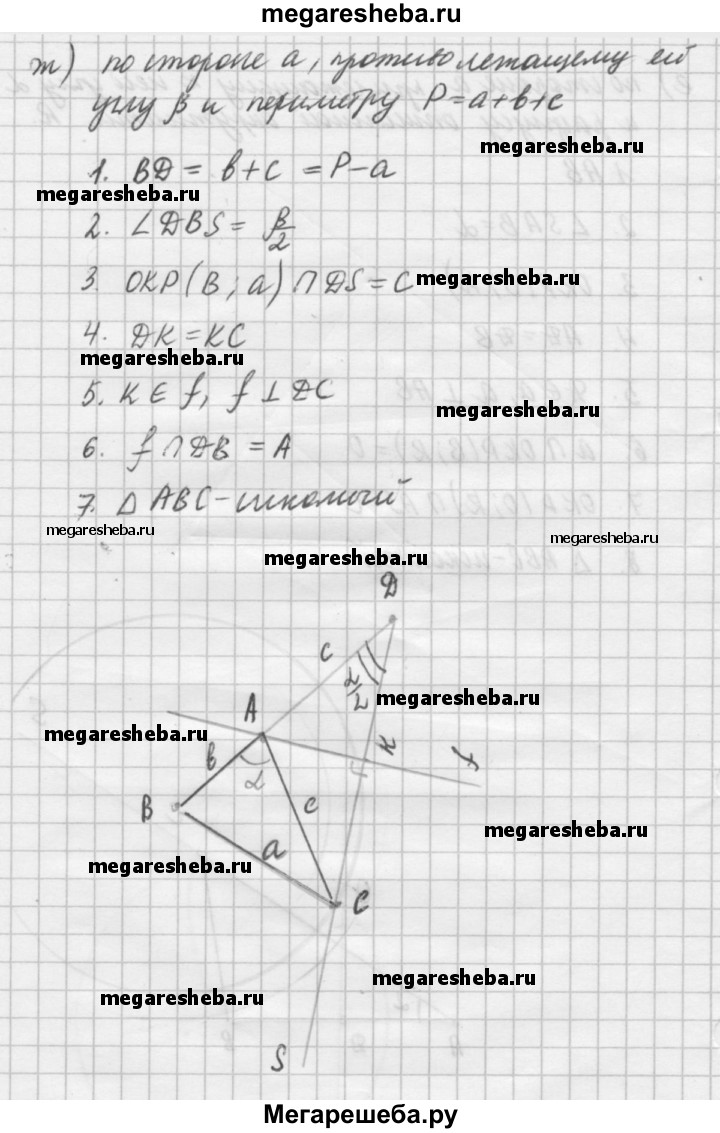 megaresheba.ru
ж) по стороне а, противолежащему ей
углу β и периметру P=a+b+c
megaresheba.ru
1. BD = b+c = P-a
megaresheba.ru
2. ∠DBS = β/2
3. ОКР(B; a) ∩ DS = C
megaresheba.ru
4. DK = KC
megaresheba.ru
5. K ∈ f, f ⊥ DC
megaresheba.ru
6. f ∩ DB = A
7. △ ABC - искомый
megaresheba.ru
megaresheba.ru
megaresheba.ru
D
c
α/2
megaresheba.ru
A
megaresheba.ru
K
f
b
α
B
c
megaresheba.ru
a
megaresheba.ru
C
megaresheba.ru
megaresheba.ru
S
Мегарешеба.ру